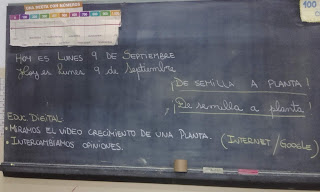 100
HOY ES LUNES 9 DE SEPTIEMBRE
Hoy es lunes 9 de septiembre
¡DE SEMILLA A PLANTA!
¡De semilla a planta!
EDUC. DIGITAL:
• MIRAMOS EL VIDEO CRECIMIENTO DE UNA PLANTA. (INTERNET/GOOGLE)
• INTERCAMBIAMOS OPINIONES.